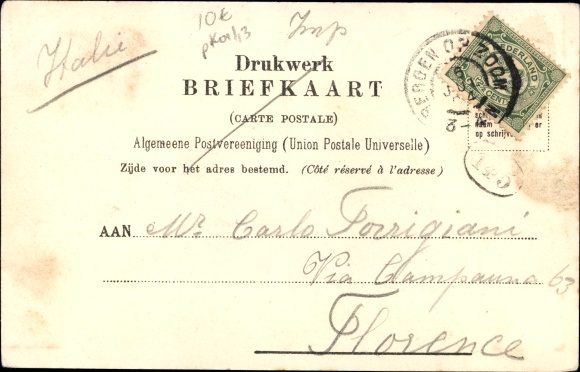 10€
pko1/13
Imp
Italie
Drukwerk
BRIEFKAART
(CARTE POSTALE)
Algemeene Postvereeniging (Union Postale Universelle)
Zijde voor het adres bestemd. (Côté réservé à l'adresse)
BERGEN OP ZOOM
NEDERLAND
CENT
op schrijv
AAN Mr. Carlo Torrigiani
Via Campauna 63
Florence